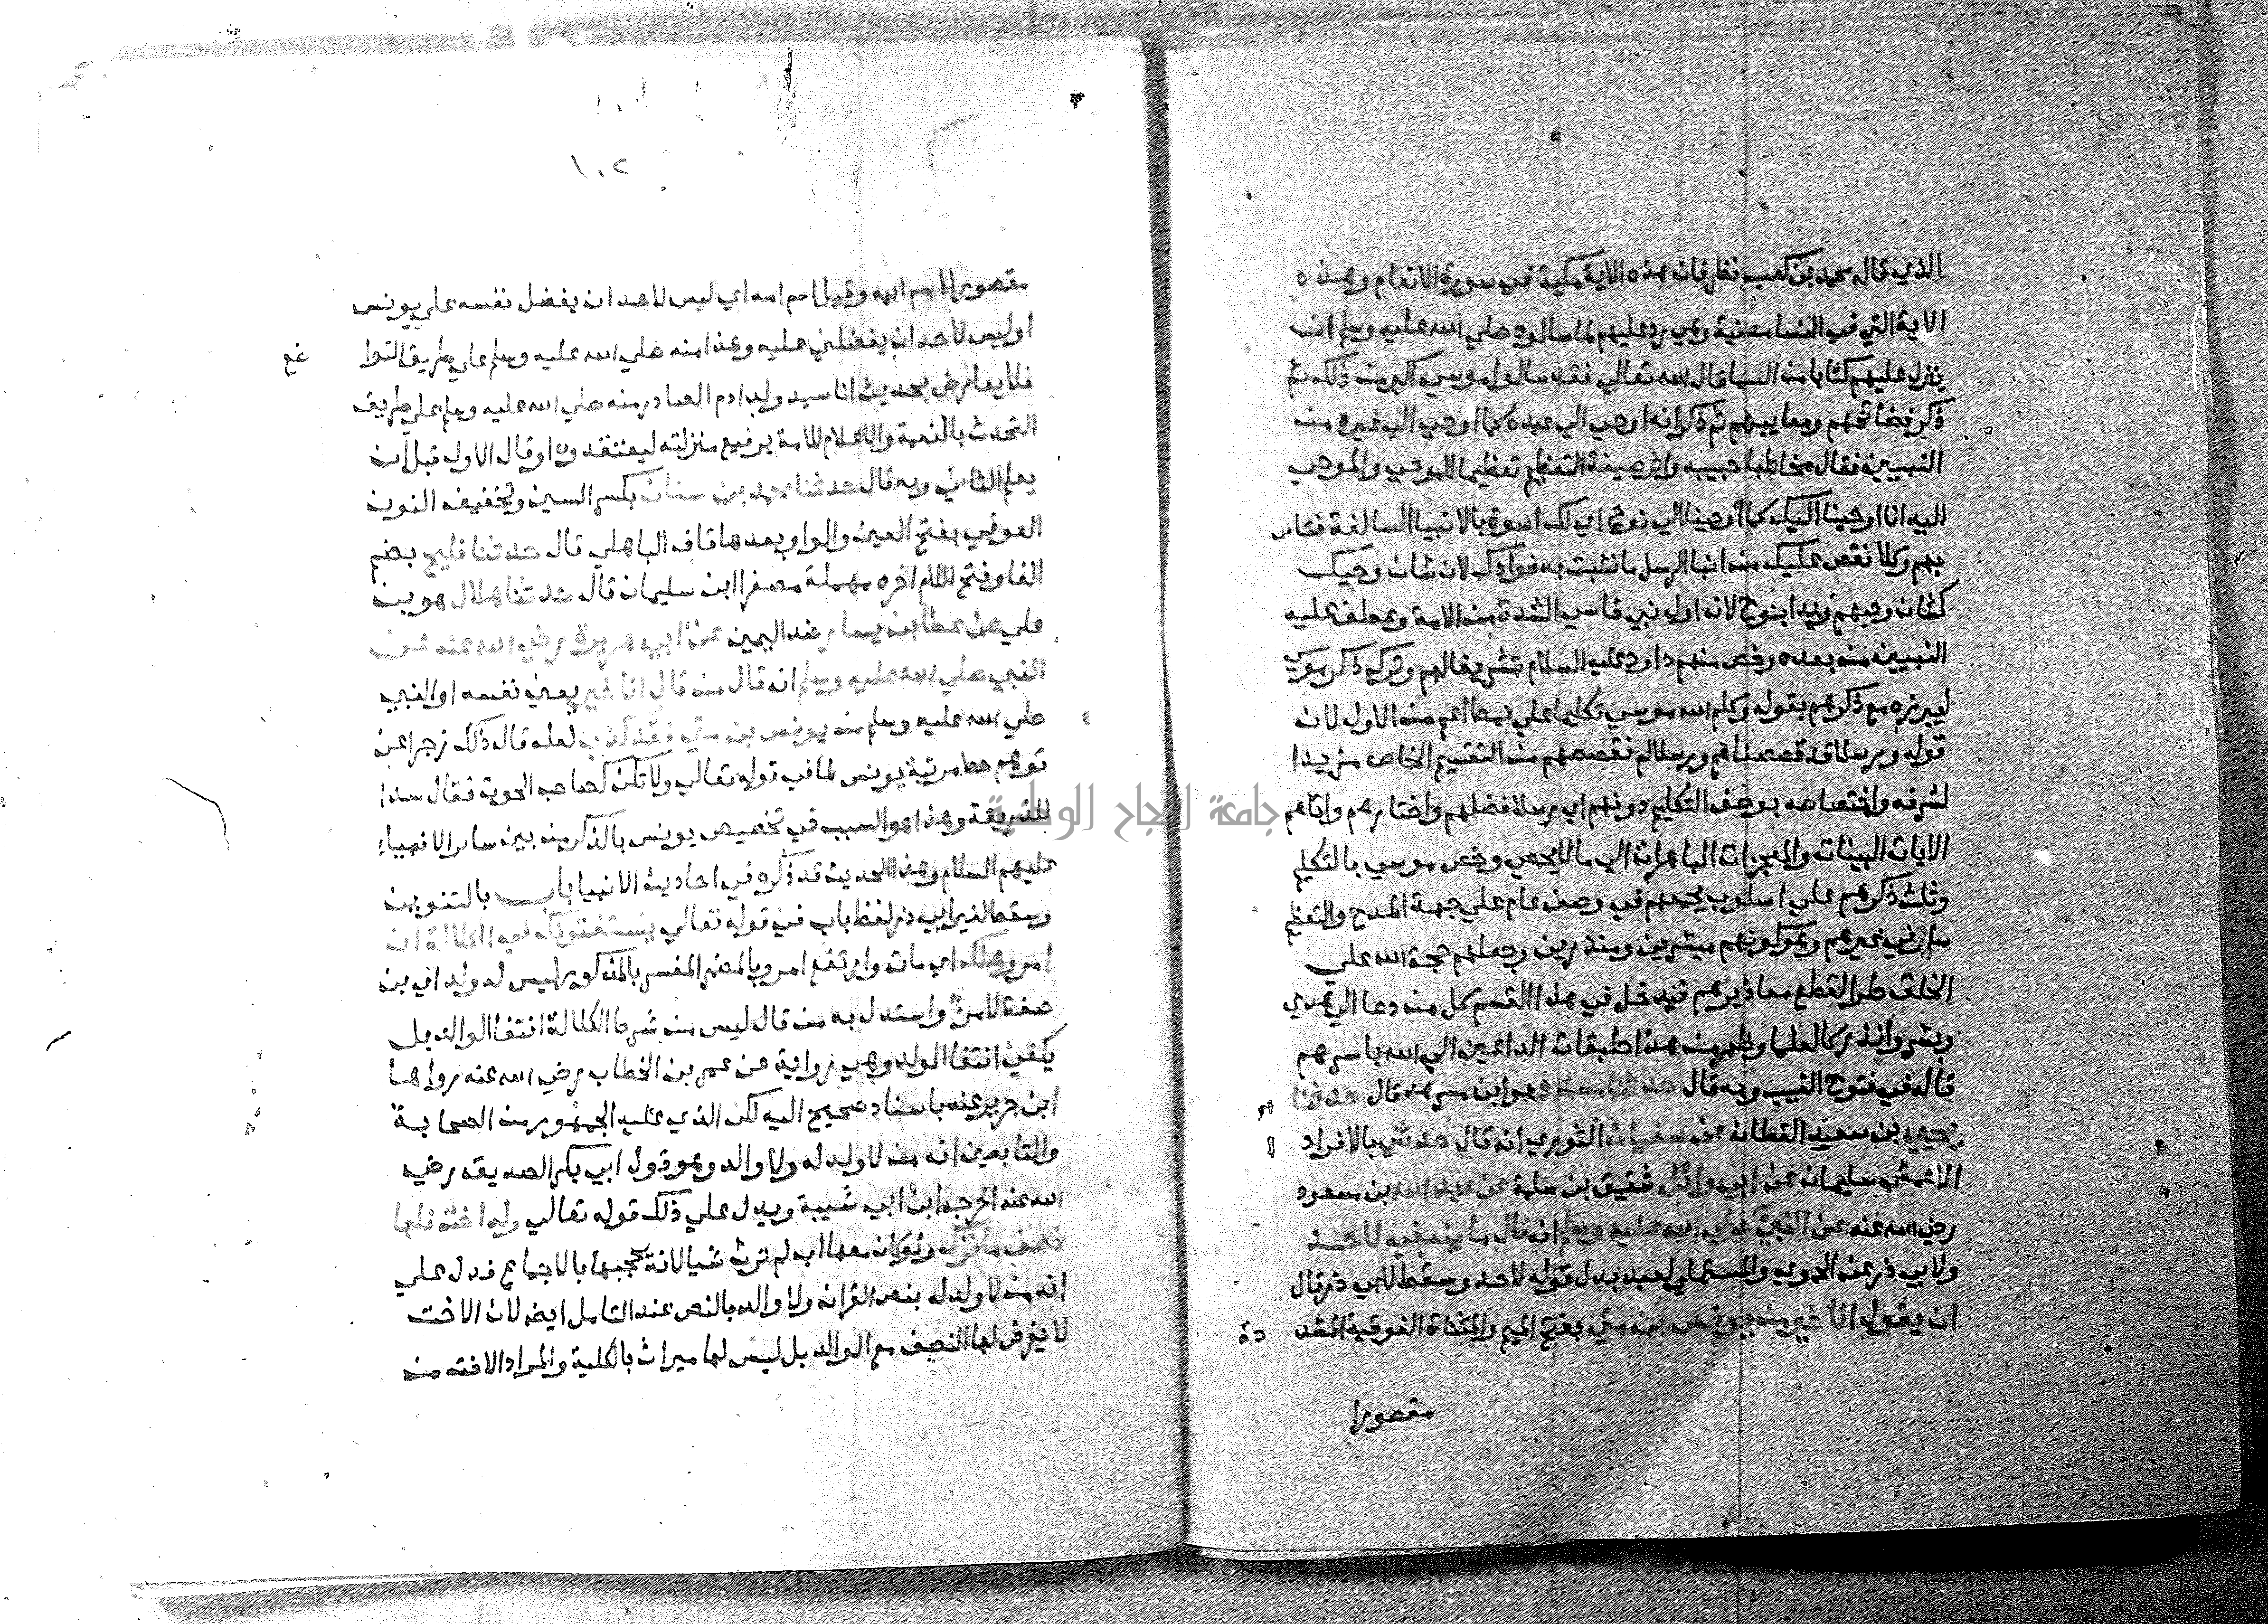 الذي قاله محمد بن كعب نظر فان هذه الاية مكية في سورة الانعام وهذه
الاية التي في النسا مدنية وهي رد عليهم لما سالوه صلي الله عليه وسلم ان
ينزل عليهم كتابا من السما قال الله تعالي فقد سالوا موسي اكبر من ذلك ثم
ذكر فضائحهم ومعايبهم ثم ذكر انه اوحي الي عبده كما اوحي الي غيره من
النبيين فقال مخاطبا حبيبه واثر صيغة التعظيم تعظيما للموحي والموحي
اليه انا اوحينا اليك كما أوحينا الي نوح اي لك اسوة بالانبيا السالفة فتاس
بهم وكلا نقص عليك من انبا الرسل ما نثبت به فوادك لان شان وحيك
كشان وحيهم وبدا بنوح لانه اول نبي قاسي الشدة من الامة وعطف عليه
النبيين من بعده وخص منهم داود عليه السلام تشريفا لهم وترك ذكر موسي
ليبرزه مع ذكرهم بقوله وكلم الله موسي تكليما علي نمط اعم من الاول لان
قوله ورسلا قد قصصناهم ورسلا لم نقصصهم من التقسيم الخاص مزيدا
لشرفه واختصاصه بوصف التكليم دونهم اي رسلا فضلهم واختارهم واتاهم
الايات البينات والمعجزات الباهرات الي ما لا يحصي وخص موسي بالتكليم
وثلث ذكرهم علي اسلوب يجمعهم في وصف عام علي جهة المدح والتعظيم
سار في غيرهم وهو كونهم مبشرين ومنذرين وجعلهم حجة الله علي
الخلق طرا لقطع معاذيرهم فيدخل في هذا القسم كل من دعا الي هدي
وبشر وانذر كالعلما وظهر من هذا طبقات الداعين الي الله باسرهم
قاله في فتوح الغيب وبه قال حدثنا مسدد وهو ابن مسرهد قال حدثنا
يحيي بن سعيد القطان عن سفيان الثوري انه قال حدثني بالافراد
الاعمش سليمان عن ابي وائل شقيق بن سلمة عن عبد الله بن مسعود
رضي الله عنه عن النبي صلي الله عليه وسلم انه قال ما ينبغي لاحد
ولابي ذر عن الحموي والمستملي لعبد بدل قوله لاحد وسقط لابي ذر قال
ان يقول انا خير من يونس بن متي بفتح الميم والمثناة الفوقية المشددة
مقصورا
١٠٢
مقصورا اسم ابيه وقيل اسم امه اي ليس لاحد ان يفضل نفسه علي يونس
او ليس لاحد ان يفضلني عليه وهذا منه صلي الله عليه وسلم علي طريق التواضع
فلا يعارض بحديث انا سيد ولد ادم الصادر منه صلي الله عليه وسلم علي طريق
التحدث بالنعمة والاعلام للامة برفيع منزلته ليعتقدوه او قال الاول قبل ان
يعلم الثاني وبه قال حدثنا محمد بن سنان بكسر السين وتخفيف النون
العوقي بفتح العين والواو بعدها قاف الباهلي قال حدثنا فليح بضم
الفا وفتح اللام اخره مهملة مصغرا ابن سليمان قال حدثنا هلال هو بن
علي عن عطا بن يسار ضد اليمين عن أبي هريرة رضي الله عنه عن
النبي صلي الله عليه وسلم انه قال من قال انا خير يعني نفسه او النبي
صلي الله عليه وسلم من يونس بن متي فقد كذب لعله قال ذلك زجرا عن
توهم حط مرتبة يونس لما في قوله تعالي ولا تكن كصاحب الحوت فقال سدا
للذريعة وهذا هو السبب في تخصيص يونس بالذكر من بين ساير الانبياء
عليهم السلام وهذا الحديث قد ذكره في احاديث الانبيا باب بالتنوين
وسقط لغير ابي ذر لفظ باب في قوله تعالي يستفتونك في الكلالة ان
امرو هلك اي مات وارتفع امرو بالمضمر المفسر بالمذكور ليس له ولد اي بن
صفة لامرؤ واستدل به من قال ليس من شرط الكلالة انتفا الوالد بل
يكفي انتفا الولد وهي رواية عن عمر بن الخطاب رضي الله عنه رواها
ابن جرير عنه باسناد صحيح اليه لكن الذي عليه الجمهور من الصحابة
والتابعين انه من لا ولد له ولا والد وهو قول ابي بكر الصديق رضي
الله عنه اخرجه ابن ابي شيبة ويدل علي ذلك قوله تعالي وله اخت فلها
نصف ما ترك ولو كان معها اب لم ترث شيا لانه يحجبها بالاجماع فدل علي
انه من لا ولد له بنص القران ولا والد بالنص عند التامل ايض لان الاخت
لا يفرض لها النصف مع الوالد بل ليس لها ميراث بالكلية والمراد الاخت من
جامعة النجاح الوطنية